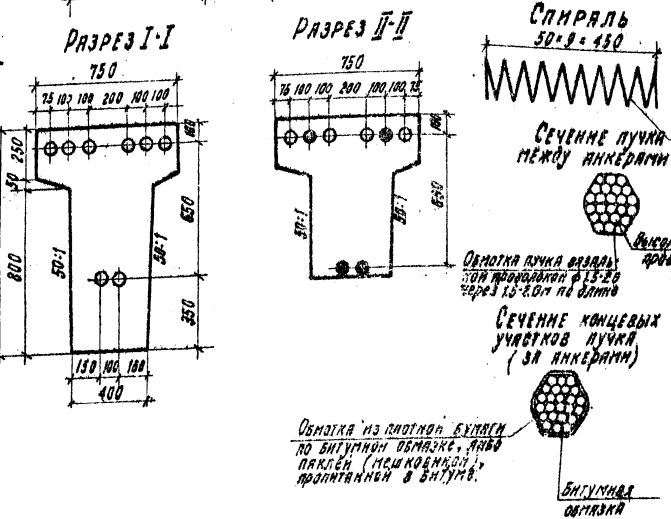 Разрез I-I
750
75 100 100 200 100 100
100
250
50
650
800
50:1
50:1
350
150 100 150
400
Разрез II-II
750
75 100 100 200 100 100 75
100
650
50:1
50:1
Спираль
50×9=450
Сечение пучка
между анкерами
Обмотка пучка вязаль-
ной проволокой ф1.5-2.0
через 1.5-2.0м по длине
Сечение концевых
участков пучка
(за анкерами)
Обмотка из плотной бумаги
по битумной обмазке, либо
паклей (мешковиной),
пропитанной в битуме.
Битумная
обмазка